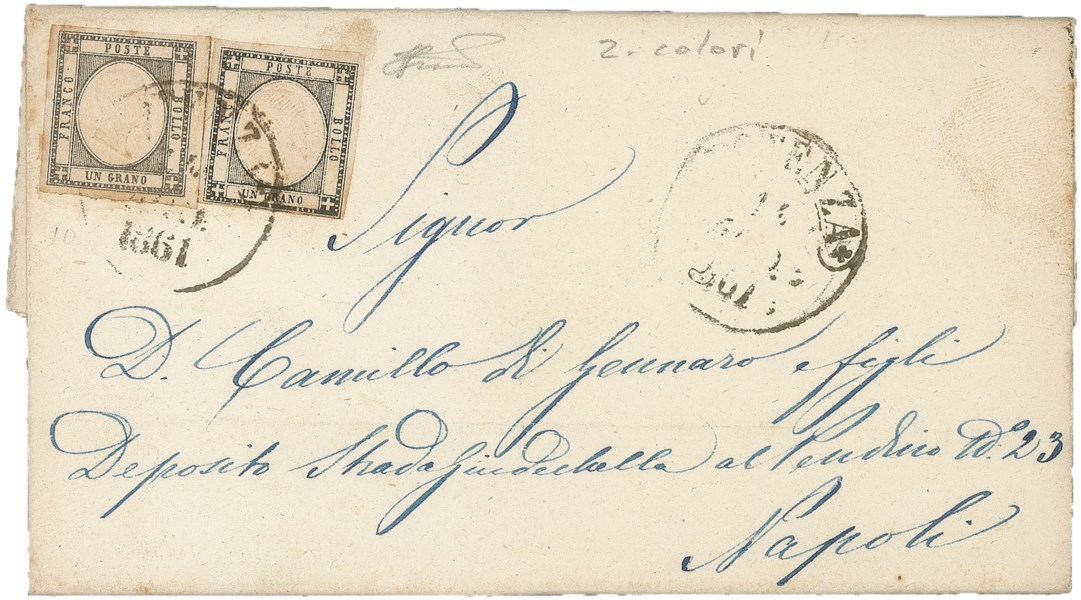 POSTE
FRANCO
BOLLO
UN GRANO
POSTE
FRANCO
BOLLO
UN GRANO
2 colori
1861
POTENZA
1861
10
Signor
D. Camillo di Gennaro e figli
Deposito Strada Giudechella al Pendino No. 23
Napoli